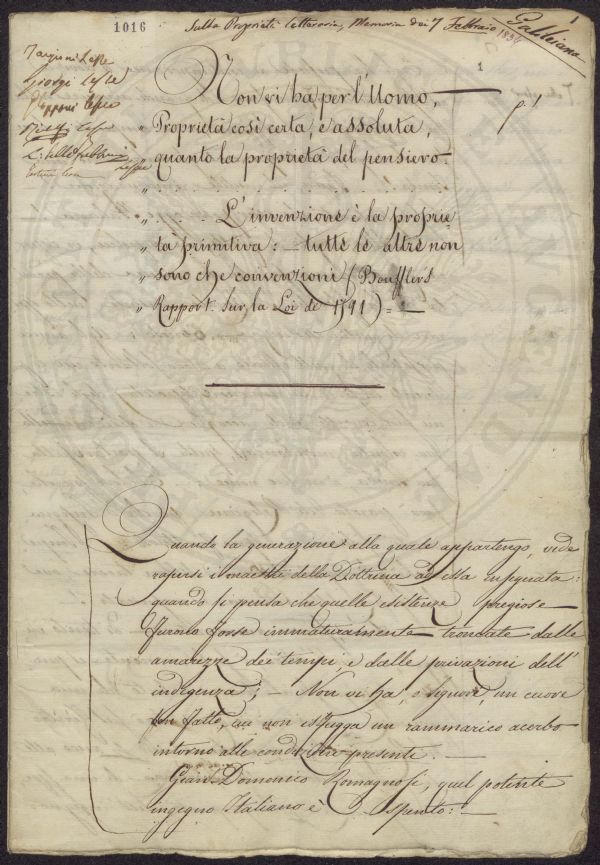 1016
Sulla Proprietà letteraria, Memoria dei 7 Febbraio 1836
1
1
Non vi ha per l'Uomo,
" Proprietà così certa, e assoluta,
" quanto la proprietà del pensiero.
" . . . . . . . . . .
" . . . . L'invenzione è la proprie
" tà primitiva: — tutte le altre non
" sono che convenzioni (Boufflers
" Rapport. sur la Loi de 1791) = —
Quando la generazione alla quale appartengo, vide
rapirsi i maestri della Dottrina ad essa insegnata:
quando si pensa che quelle esistenze pregiose
furono forse immaturamente troncate dalle
amarezze dei tempi, e dalle privazioni dell'
indigenza; — Non vi ha, o Signori, un cuore
ben fatto, cui non isfugga un rammarico acerbo
intorno alle condizioni presenti. —
Gian Domenico Romagnosi, quel potente
ingegno Italiano è spento: —